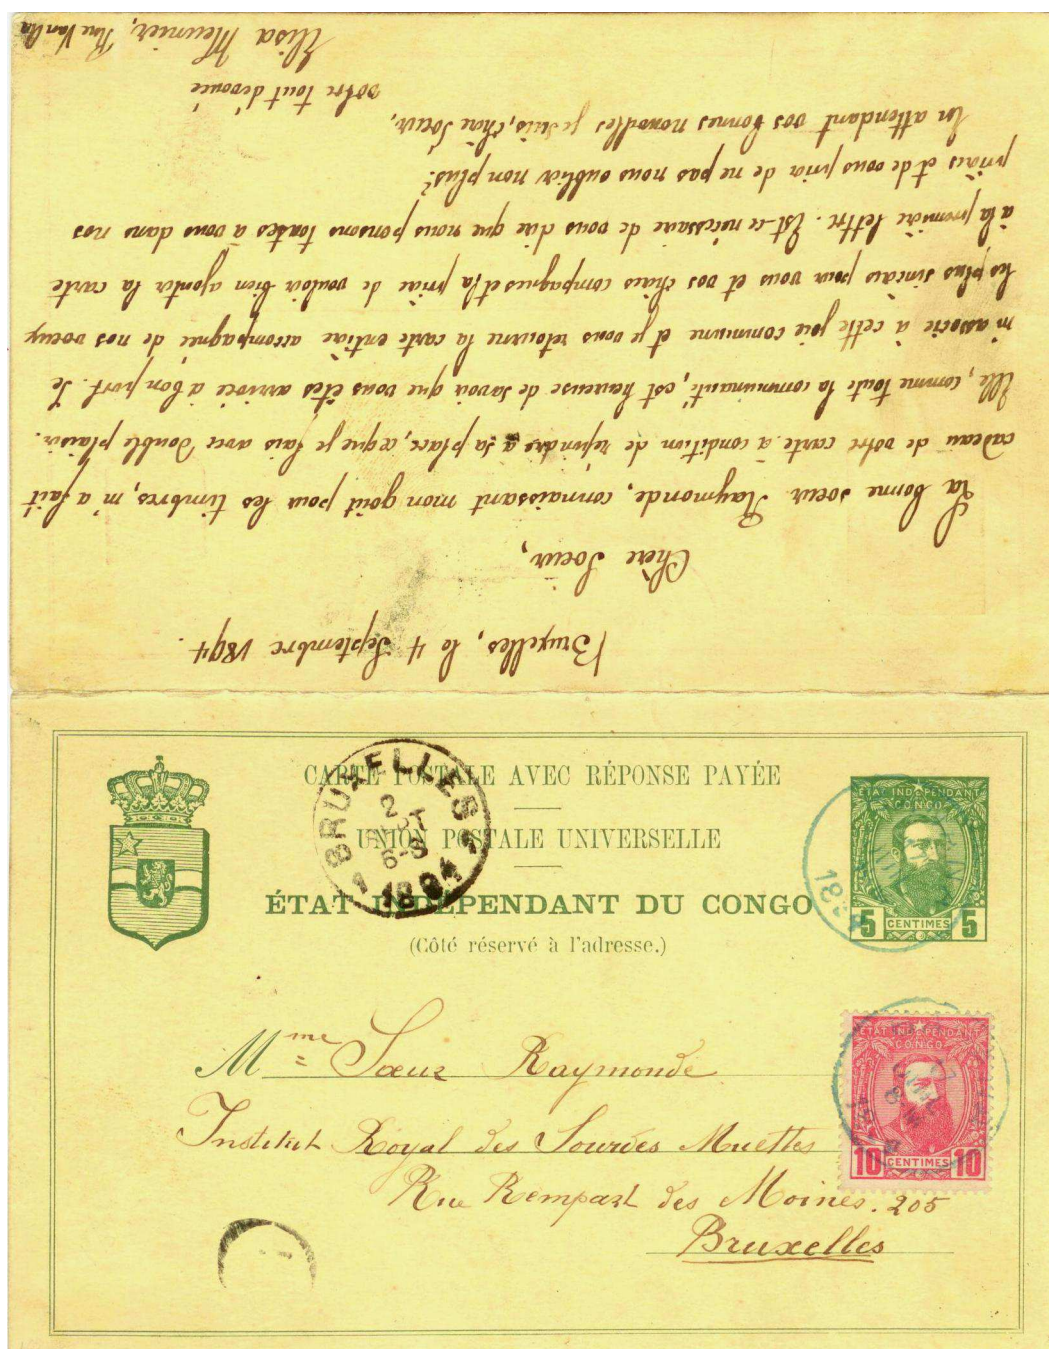 Bruxelles, le 4 Septembre 1894.
Chère Soeur,
La bonne soeur Raymonde, connaissant mon goût pour les timbres, m'a fait
cadeau de votre carte à condition de répondre a sa place, ce que je fais avec double plaisir.
Elle, comme toute la communauté, est heureuse de savoir que vous êtes arrivée à bon port. Je
m'associe à cette joie commune et je vous retourne la carte entière accompagnée de nos voeux
les plus sincères pour vous et vos chères compagnes et la prière de vouloir bien ajouter la carte
à la première lettre. Est-ce nécessaire de vous dire que nous pensons toutes à vous dans nos
prières et de vous prier de ne pas nous oublier non plus?
En attendant vos bonnes nouvelles je suis, chère Soeur,
votre tout dévouée
Elisa Meunier, Rue Van
CARTE POSTALE AVEC RÉPONSE PAYÉE
UNION POSTALE UNIVERSELLE
ÉTAT INDÉPENDANT DU CONGO
(Côté réservé à l'adresse.)
BRUXELLES 1
2
6-S
1894
ÉTAT INDÉPENDANT
CONGO
5 CENTIMES 5
ÉTAT INDÉPENDANT
CONGO
10 CENTIMES 10
Mme Sœur Raymonde
Institut Royal des Sourdes Muettes
Rue Rempart des Moines. 205
Bruxelles